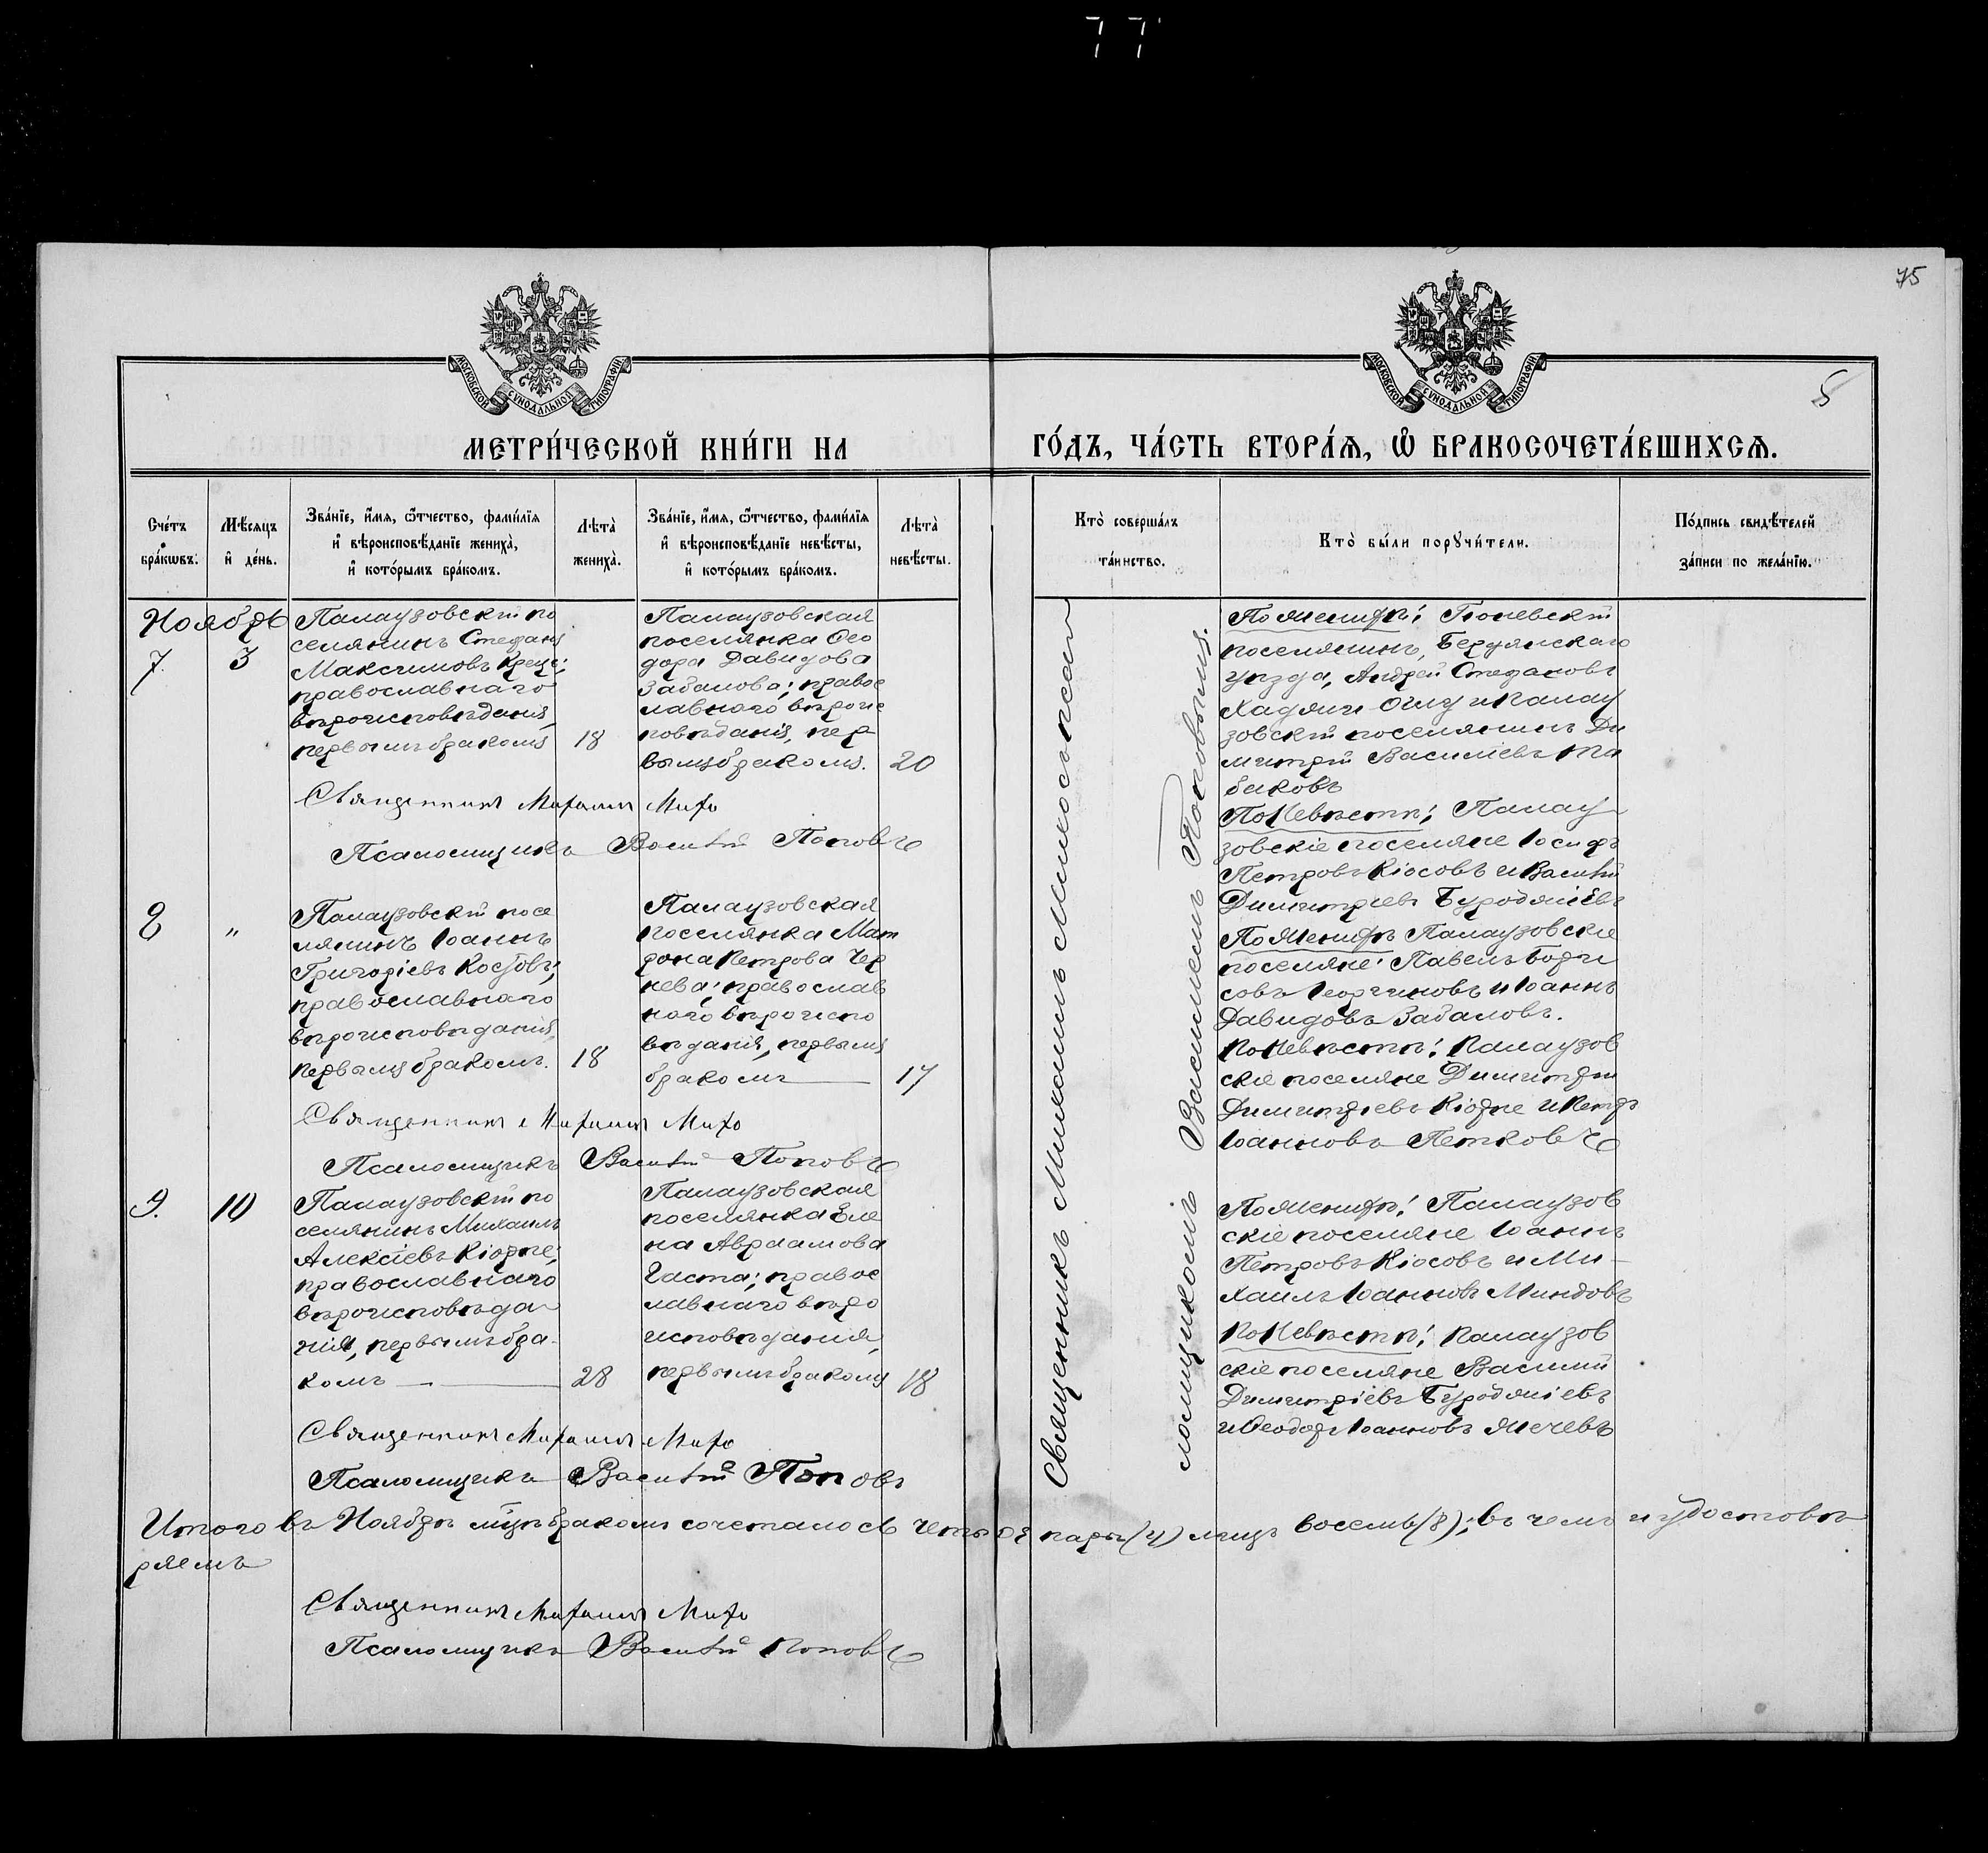 77
75
5
МОСКОВСКОЙ СѴНОДАЛЬНОЙ ТИПОГРАФІИ
МОСКОВСКОЙ СѴНОДАЛЬНОЙ ТИПОГРАФІИ
МЕТРИ́ЧЕСКОЙ КНИ́ГИ НА
ГО́ДЪ, ЧА́СТЬ ВТОРА́Ѧ, Ѽ БРАКОСОЧЕТА́ВШИХСѦ.
Сче́тъ бра́кѡвъ.
Мѣ́сяцъ и҆ де́нь.
Зва́нїе, и҆́мя, ѻ҆́тчество, фами́лїя
и҆ вѣроисповѣ́данїе жениха̀,
и҆ кото́рымъ бра́комъ.
Лѣта̀ жениха̀.
Зва́нїе, и҆́мя, ѻ҆́тчество, фами́лїя
и҆ вѣроисповѣ́данїе невѣ́сты,
и҆ кото́рымъ бра́комъ.
Лѣта̀ невѣ́сты.
Кто̀ соверша́лъ
та́инство.
Кто̀ бы́ли порꙋчи́тели.
По́дпись свидѣ́телей
за́писи по жела́нїю.
Ноябрь
7.
3
Палаузовскій по
селянинъ Стефанъ
Максимовъ
православнаго
вѣроисповѣданія,
первымъ бракомъ
18
Палаузовская
поселянка Ѳео
дора Давидова
Забалова; правос
лавнаго вѣроис
повѣданія, пер
вымъ бракомъ.
20
Священникъ Михаилъ
Псаломщикъ Василій Поповъ
По женихѣ: Гюневскій
поселянинъ, Бердянскаго
уѣзда, Андрей Стефановъ
Хаджи Оглу и Палау
зовскій поселянинъ Ди
митрій Василіевъ Та
баковъ
По Невѣстѣ: Палау
зовскіе поселяне Іосифъ
Петровъ Кіосовъ и Василій
Димитріевъ Буроджіевъ
8
"
Палаузовскій посе
лянинъ Іоаннъ
Григоріевъ Костовъ;
православнаго
вѣроисповѣданія,
первымъ бракомъ.
18
Палаузовская
поселянка Мат
рона Петрова Чер
нева; православ
наго вѣроиспо
вѣданія, первымъ
бракомъ
17
Священникъ Михаилъ
Псаломщикъ Василій Поповъ
По Женихѣ Палаузовскіе
поселяне: Павелъ Бори
совъ Георгиновъ и Іоаннъ
Давидовъ Забаловъ.
По Невѣстѣ: Палаузов
скіе поселяне Димитрій
Димитріевъ Кіорпе и Петръ
Іоанновъ Петковъ
9.
10
Палаузовскій по
селянинъ Михаилъ
Алексіевъ Кіорпе;
православнаго
вѣроисповѣда
нія, первымъ бра
комъ
28
Палаузовская
поселянка Еле
на Авраамова
Часта; правос
лавнаго вѣро
исповѣданія,
первымъ бракомъ
18
Священникъ Михаилъ
Псаломщикъ Василій Поповъ
По женихѣ: Палаузов
скіе поселяне Іоаннъ
Петровъ Кіосовъ и Ми-
хаилъ Іоанновъ Миндовъ
По Невѣстѣ: Палаузов
скіе поселяне Василий
Димитріевъ Буроджіевъ
и Ѳеодоръ Іоанновъ Жечевъ
Священникъ Михаилъ
ломщикомъ Василіемъ Поповымъ.
Итого въ Ноябрѣ мѣцѣ бракомъ сочеталось четыре пары (4) лицъ восемь (8); въ чемъ и удостовѣ
ряемъ
Священникъ Михаилъ
Псаломщикъ Василій Поповъ